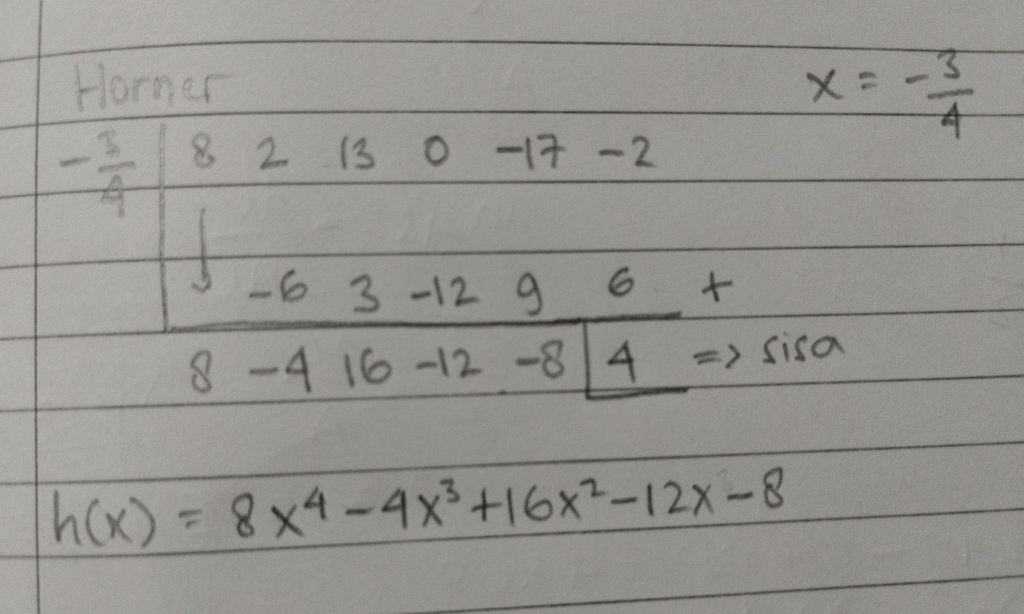 Horner x = -3/4
-3/4 | 8 2 13 0 -17 -2
↓ -6 3 -12 9 6 +
8 -4 16 -12 -8 | 4 => sisa
h(x) = 8x⁴-4x³+16x²-12x-8